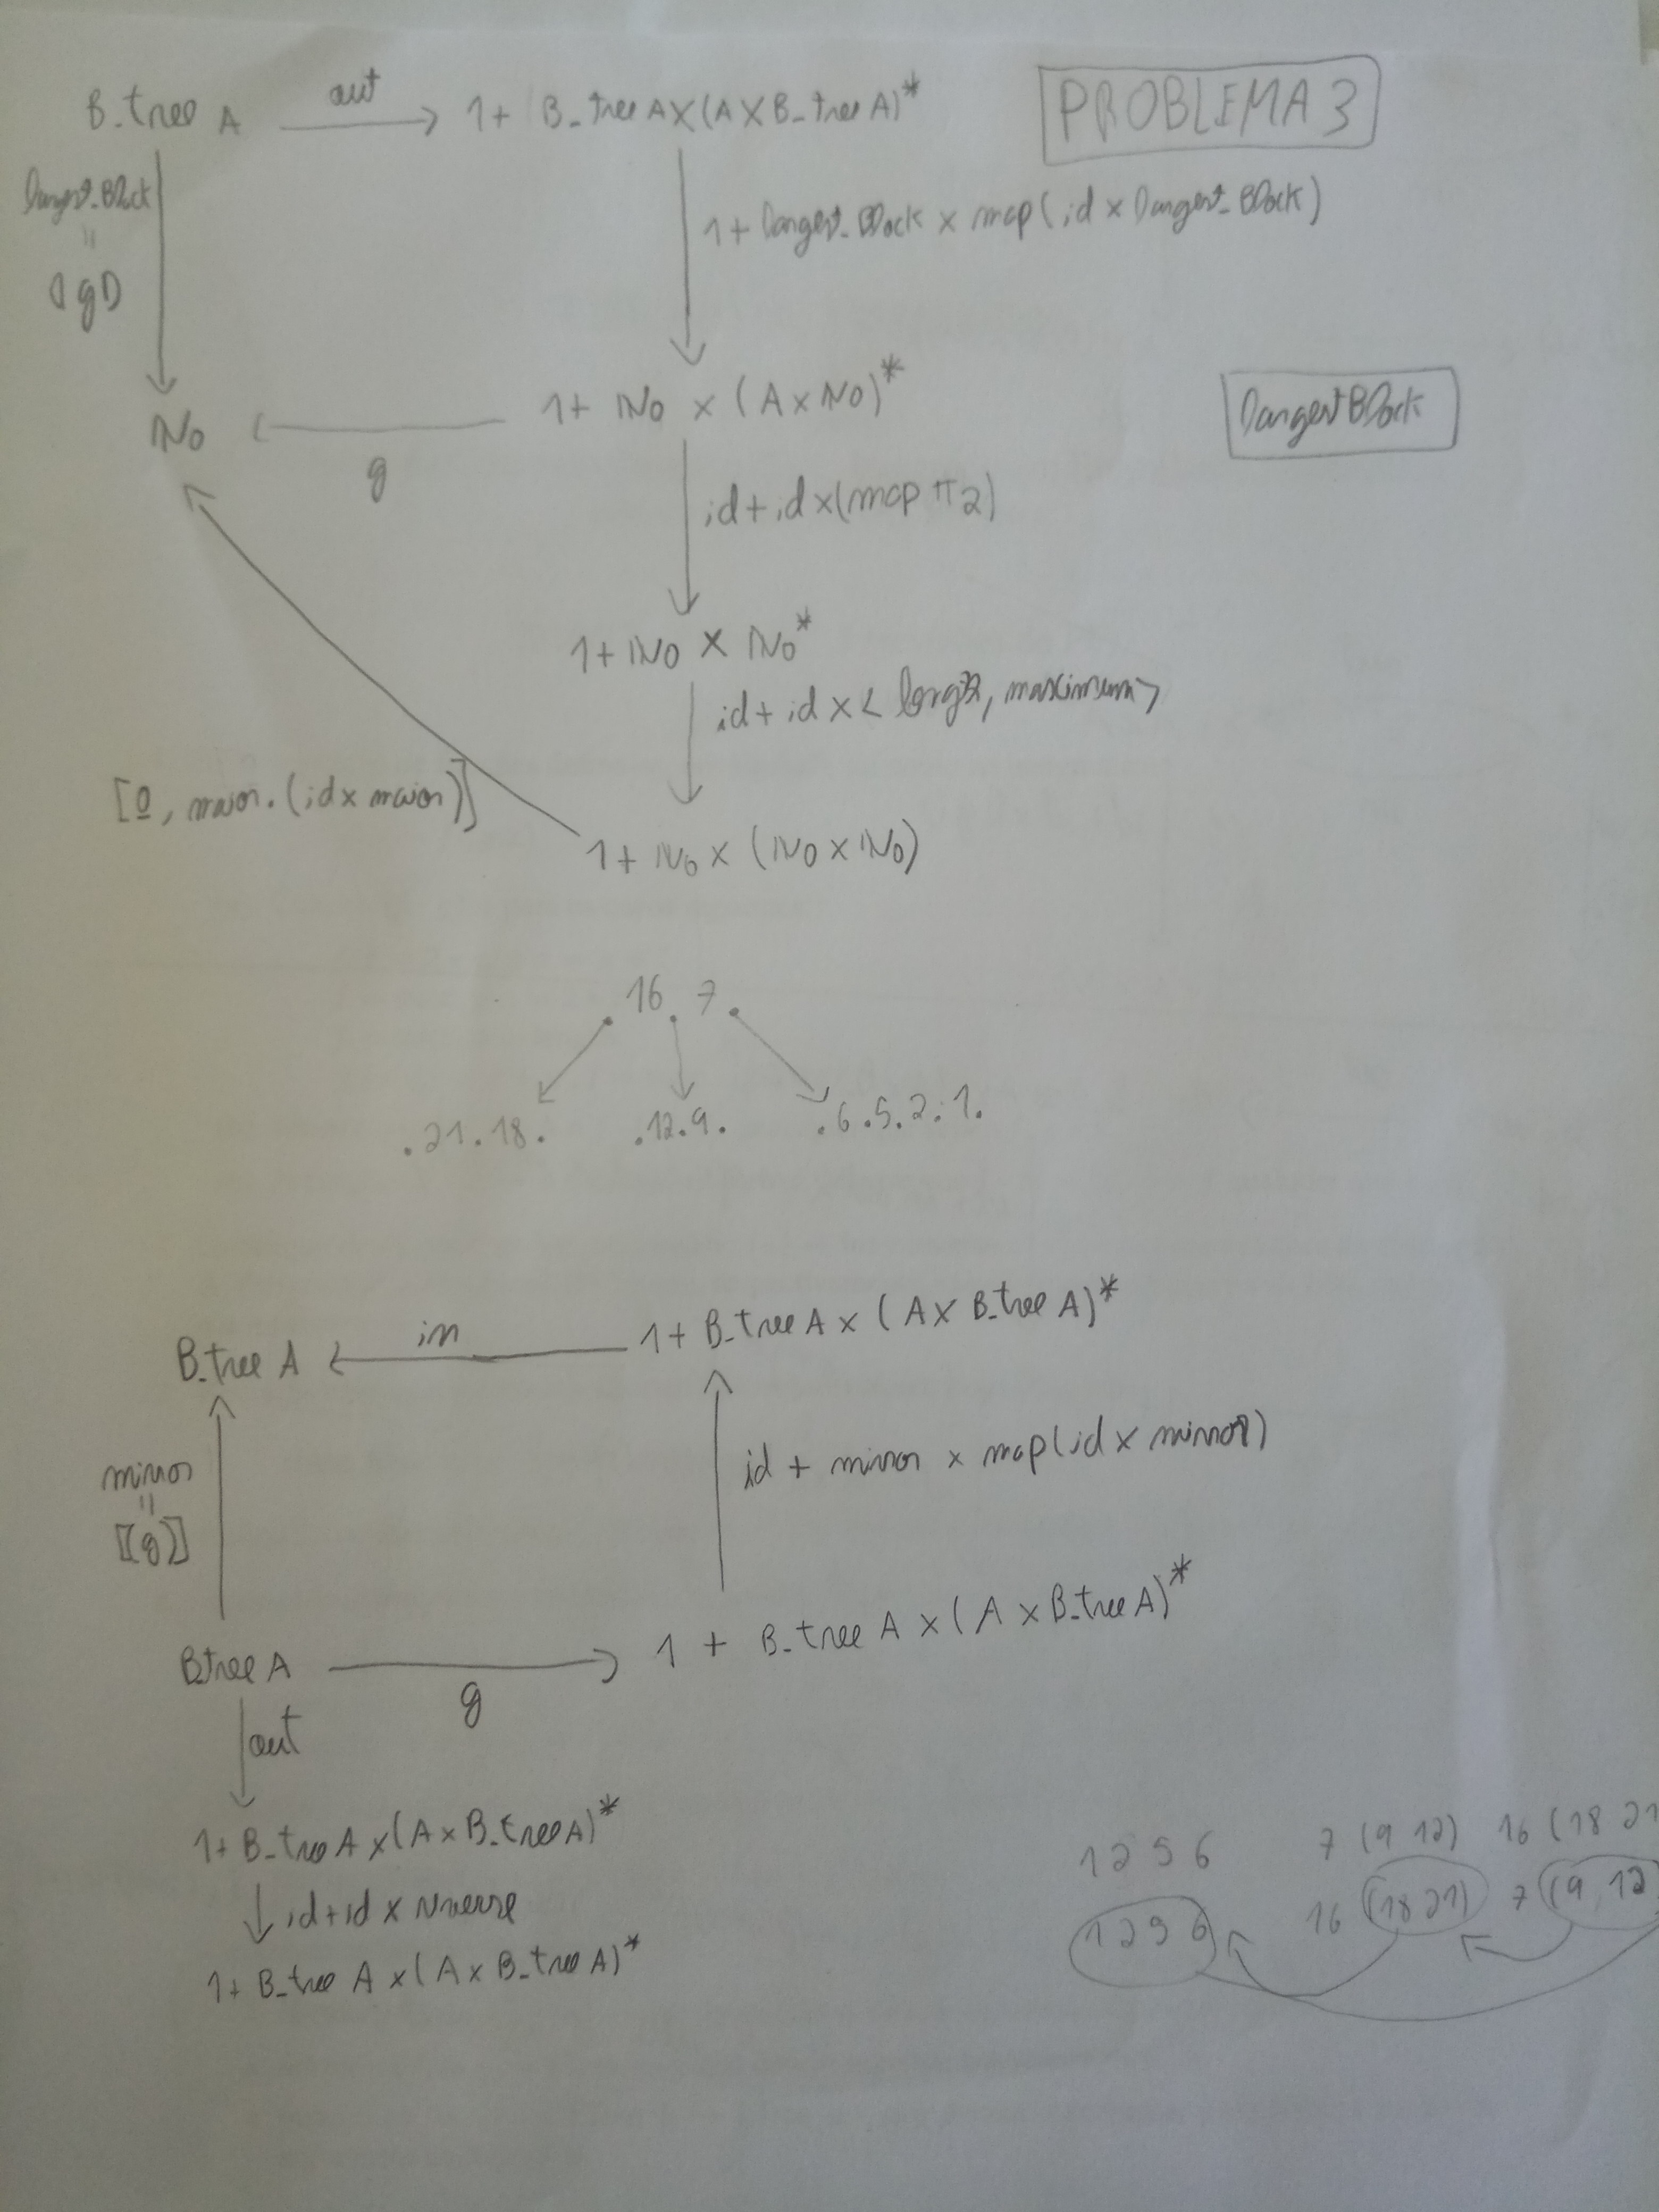 B-tree A out 1 + B-tree A × (A × B-tree A)* PROBLEMA 3
largest-Block
=
(|g|)
1 + largest-Block × map (id × largest-Block)
ℕ0 g 1 + ℕ0 × (A × ℕ0)* largestBlock
id + id × (map π2)
1 + ℕ0 × ℕ0*
id + id × < length, maximum >
[0, maior . (id × maior)]
1 + ℕ0 × (ℕ0 × ℕ0)
. 16 . 7 .
. 21 . 18 . . 12 . 9 . . 6 . 5 . 2 . 1 .
B-tree A in 1 + B-tree A × (A × B-tree A)*
mirror
=
[(g)]
id + mirror × map (id × mirror)
B-tree A g 1 + B-tree A × (A × B-tree A)*
out
1 + B-tree A × (A × B-tree A)*
id + id × reverse
1 + B-tree A × (A × B-tree A)*
1 2 5 6 7 (9 12) 16 (18 21
1 2 5 6 16 (18 21) 7 (9, 12